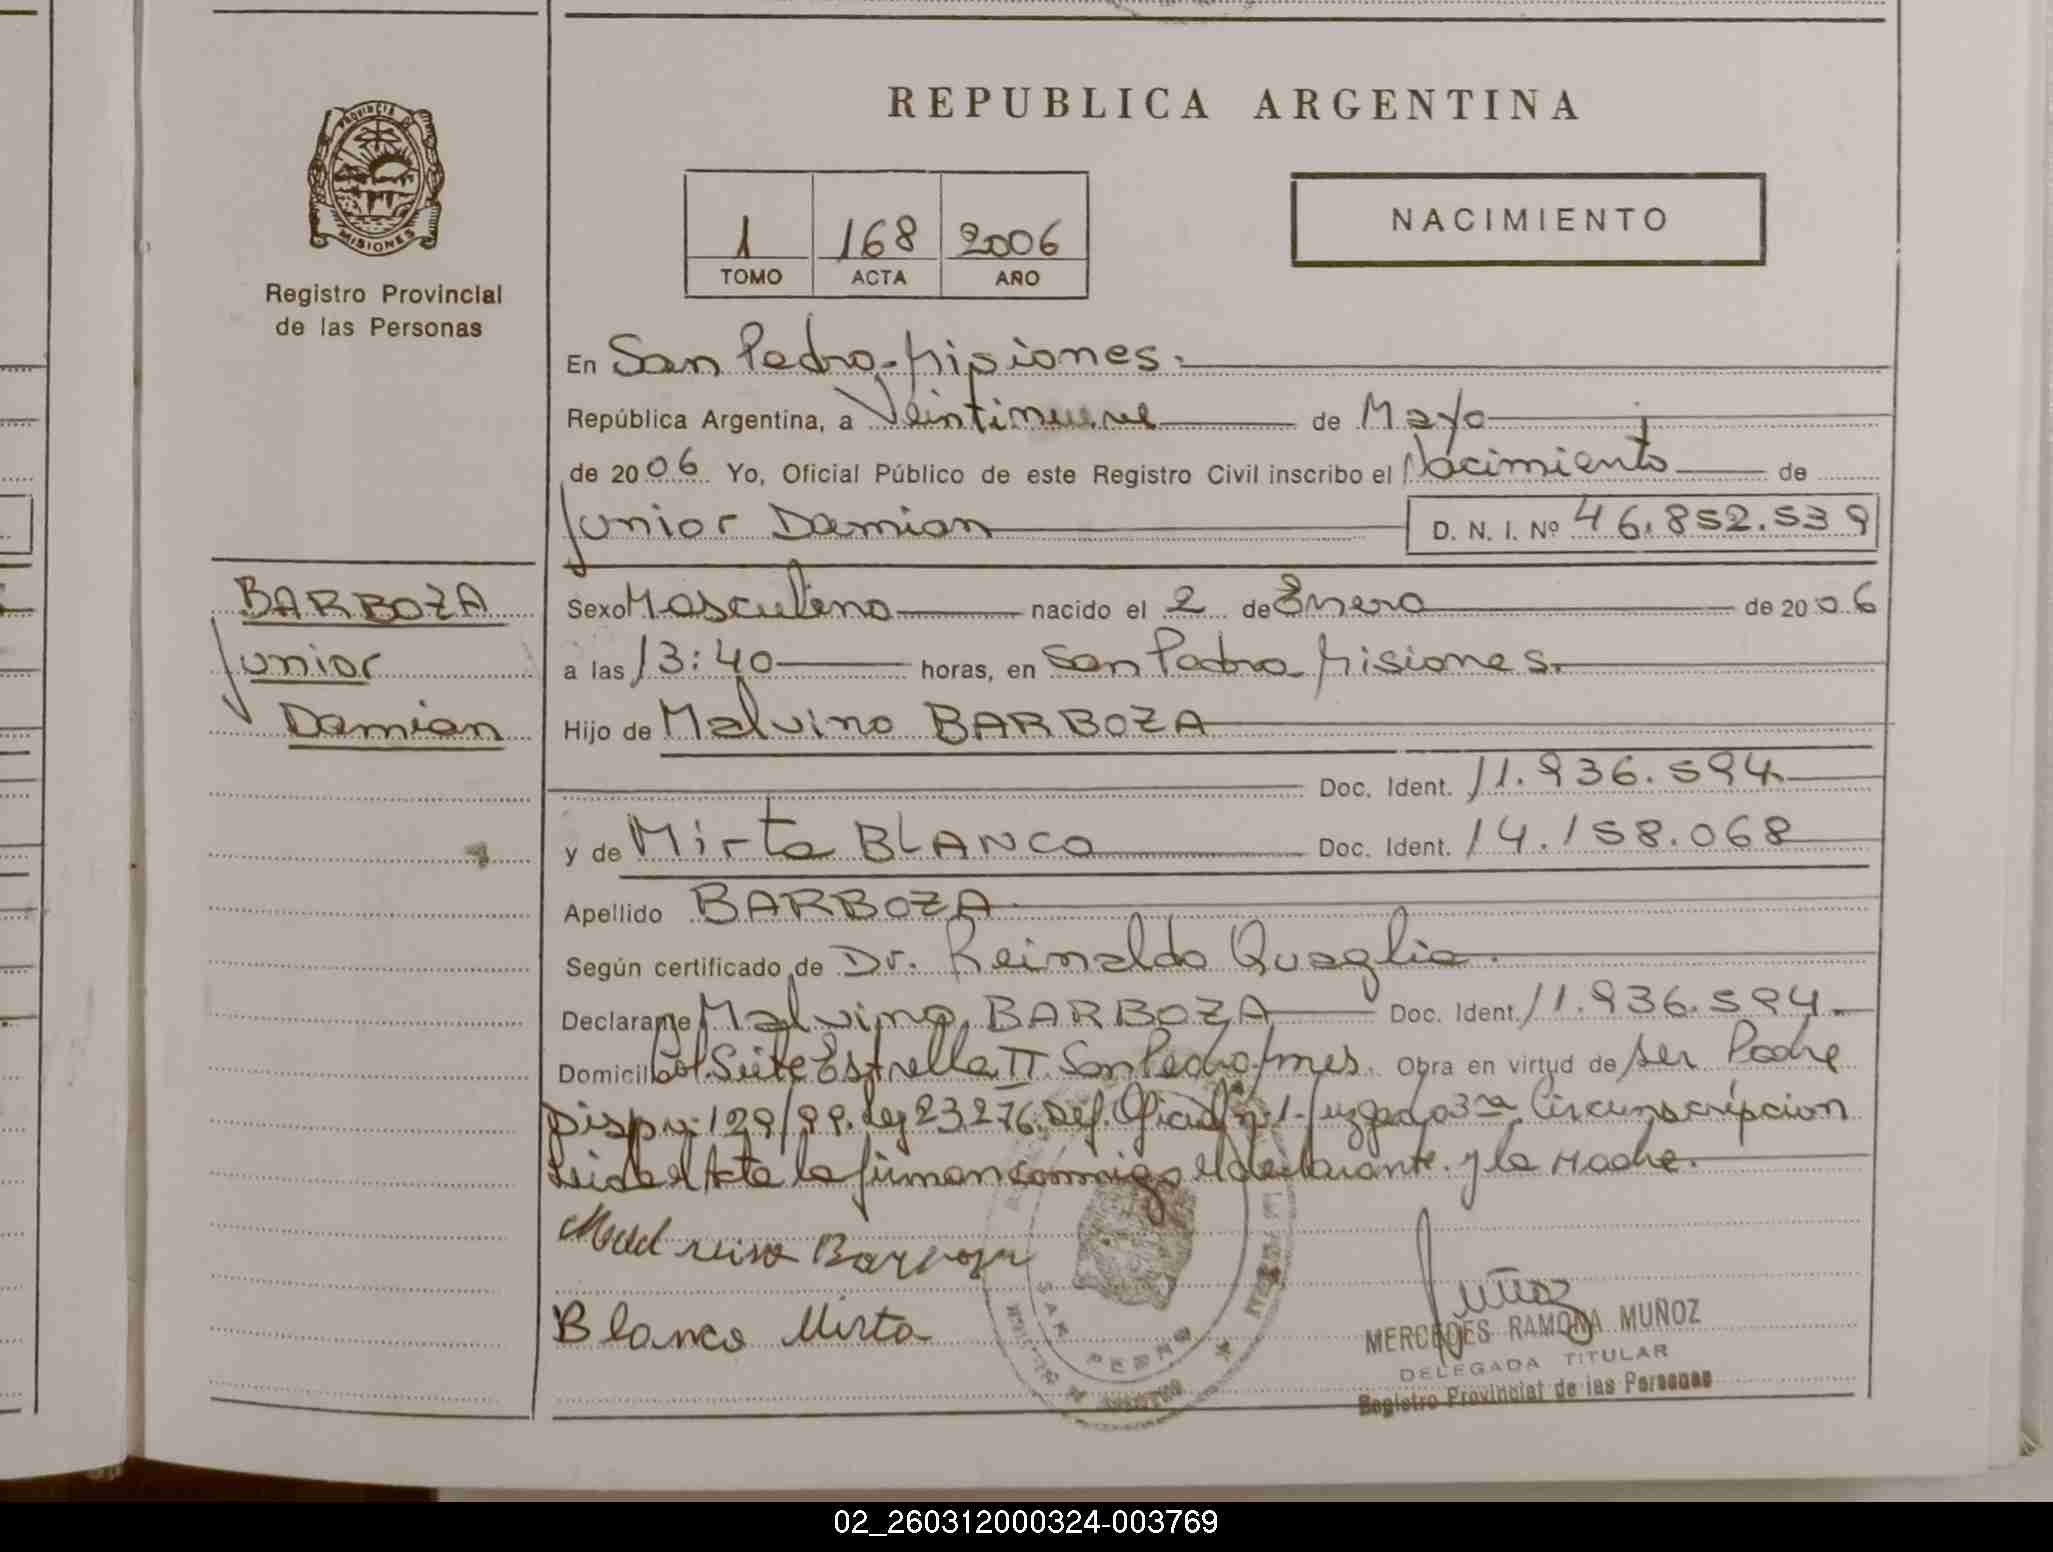 REPUBLICA ARGENTINA
PROVINCIA D
MISIONES
Registro Provincial
de las Personas
1 168 2006
TOMO ACTA AÑO
NACIMIENTO
En San Pedro-Misiones.
República Argentina, a Veintinueve de Mayo
de 2006 Yo, Oficial Público de este Registro Civil inscribo el Nacimiento de
Junior Damian D. N. I. Nº 46.852.539
BARBOZA
Junior
Damian
Sexo Masculino nacido el 2 de Enero de 2006
a las 13:40 horas, en San Pedro-Misiones.
Hijo de Malvino BARBOZA
Doc. Ident. 11.936.594
y de Mirta BLANCO Doc. Ident. 14.158.068
Apellido BARBOZA
Según certificado de Dr. Reinaldo Quaglia.
Declarante Malvino BARBOZA Doc. Ident. 11.936.594.
Domicilio Col. Siete Estrella II San Pedro, Mnes. Obra en virtud de ser Padre
Disp. nº 129/99. Ley 23276. Def. Oficial nº 1-Juzgado 3ra Circunscripcion
Leida el Acta la firman conmigo el declarante y la Madre.
Blanco Mirta
SAN PEDRO
Muñoz
MERCEDES RAMONA MUÑOZ
DELEGADA TITULAR
Registro Provincial de las Personas
02_260312000324-003769